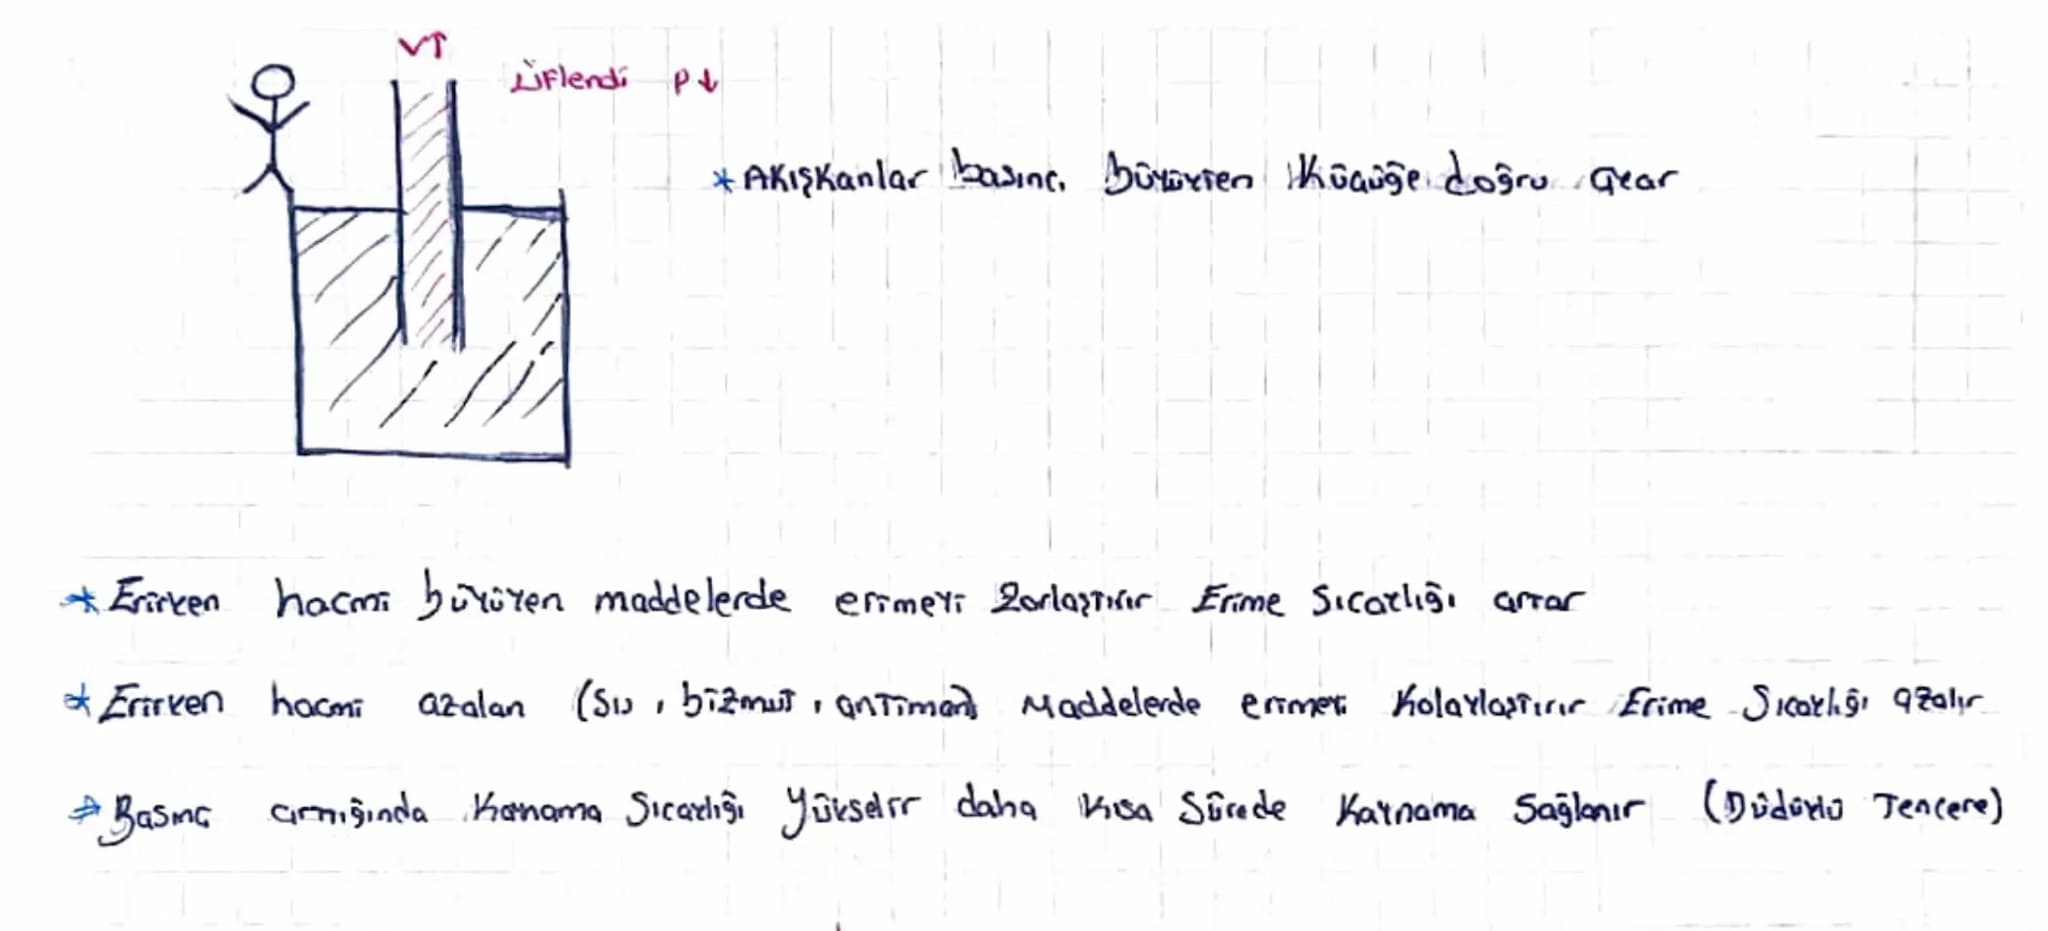 V↑
Üflendi P↓
* Akışkanlar basınç büyükten küçüğe doğru akar
* Erirken hacmi büyüyen maddelerde erimeyi zorlaştırır Erime Sıcaklığı artar
* Erirken hacmi azalan (su, bizmut, antimon) Maddelerde erimeyi Kolaylaştırır Erime Sıcaklığı azalır
* Basınç arttığında Kaynama Sıcaklığı Yükselir daha Kısa Sürede Kaynama Sağlanır (Düdüklü Tencere)